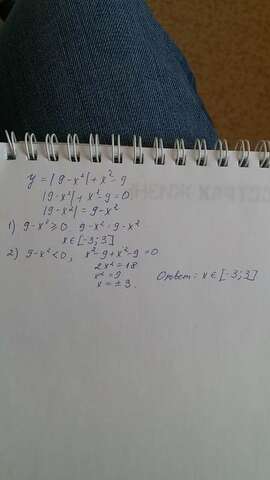 y = |9-x²| + x² - 9
|9-x²| + x² - 9 = 0
|9-x²| = 9-x²
1) 9-x² ≥ 0 9-x² = 9-x²
x ∈ [-3; 3]
2) 9-x² < 0, x² - 9 + x² - 9 = 0
2x² = 18
x² = 9
x = ± 3.
Ответ: x ∈ [-3; 3]